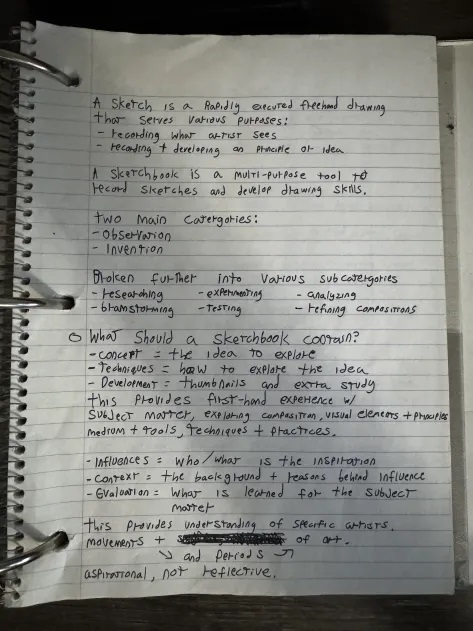 A Sketch is a Rapidly executed freehand drawing
that serves various purposes:
- recording what artist sees
- recording + developing an principle or idea
A Sketchbook is a multi-purpose tool to
record sketches and develop drawing skills.
Two Main Catergories:
- Observation
- Invention
Broken further into various subcatergories
- researching - experimenting - analyzing
- brainstorming - testing - refining compositions
What Should a sketchbook contain?
- concept = the idea to explore
- Techniques = how to explore the idea
- Development = thumbnails and extra study
this provides first-hand experience w/
subject matter, exploring composition, visual elements + principles
medium + tools, techniques + practices.
- Influences = who/what is the inspiration
- Context = the background + reasons behind influence
- Evaluation = what is learned for the subject
matter
this provides understanding of specific artists,
movements + of art.
and periods
aspirational, not reflective.